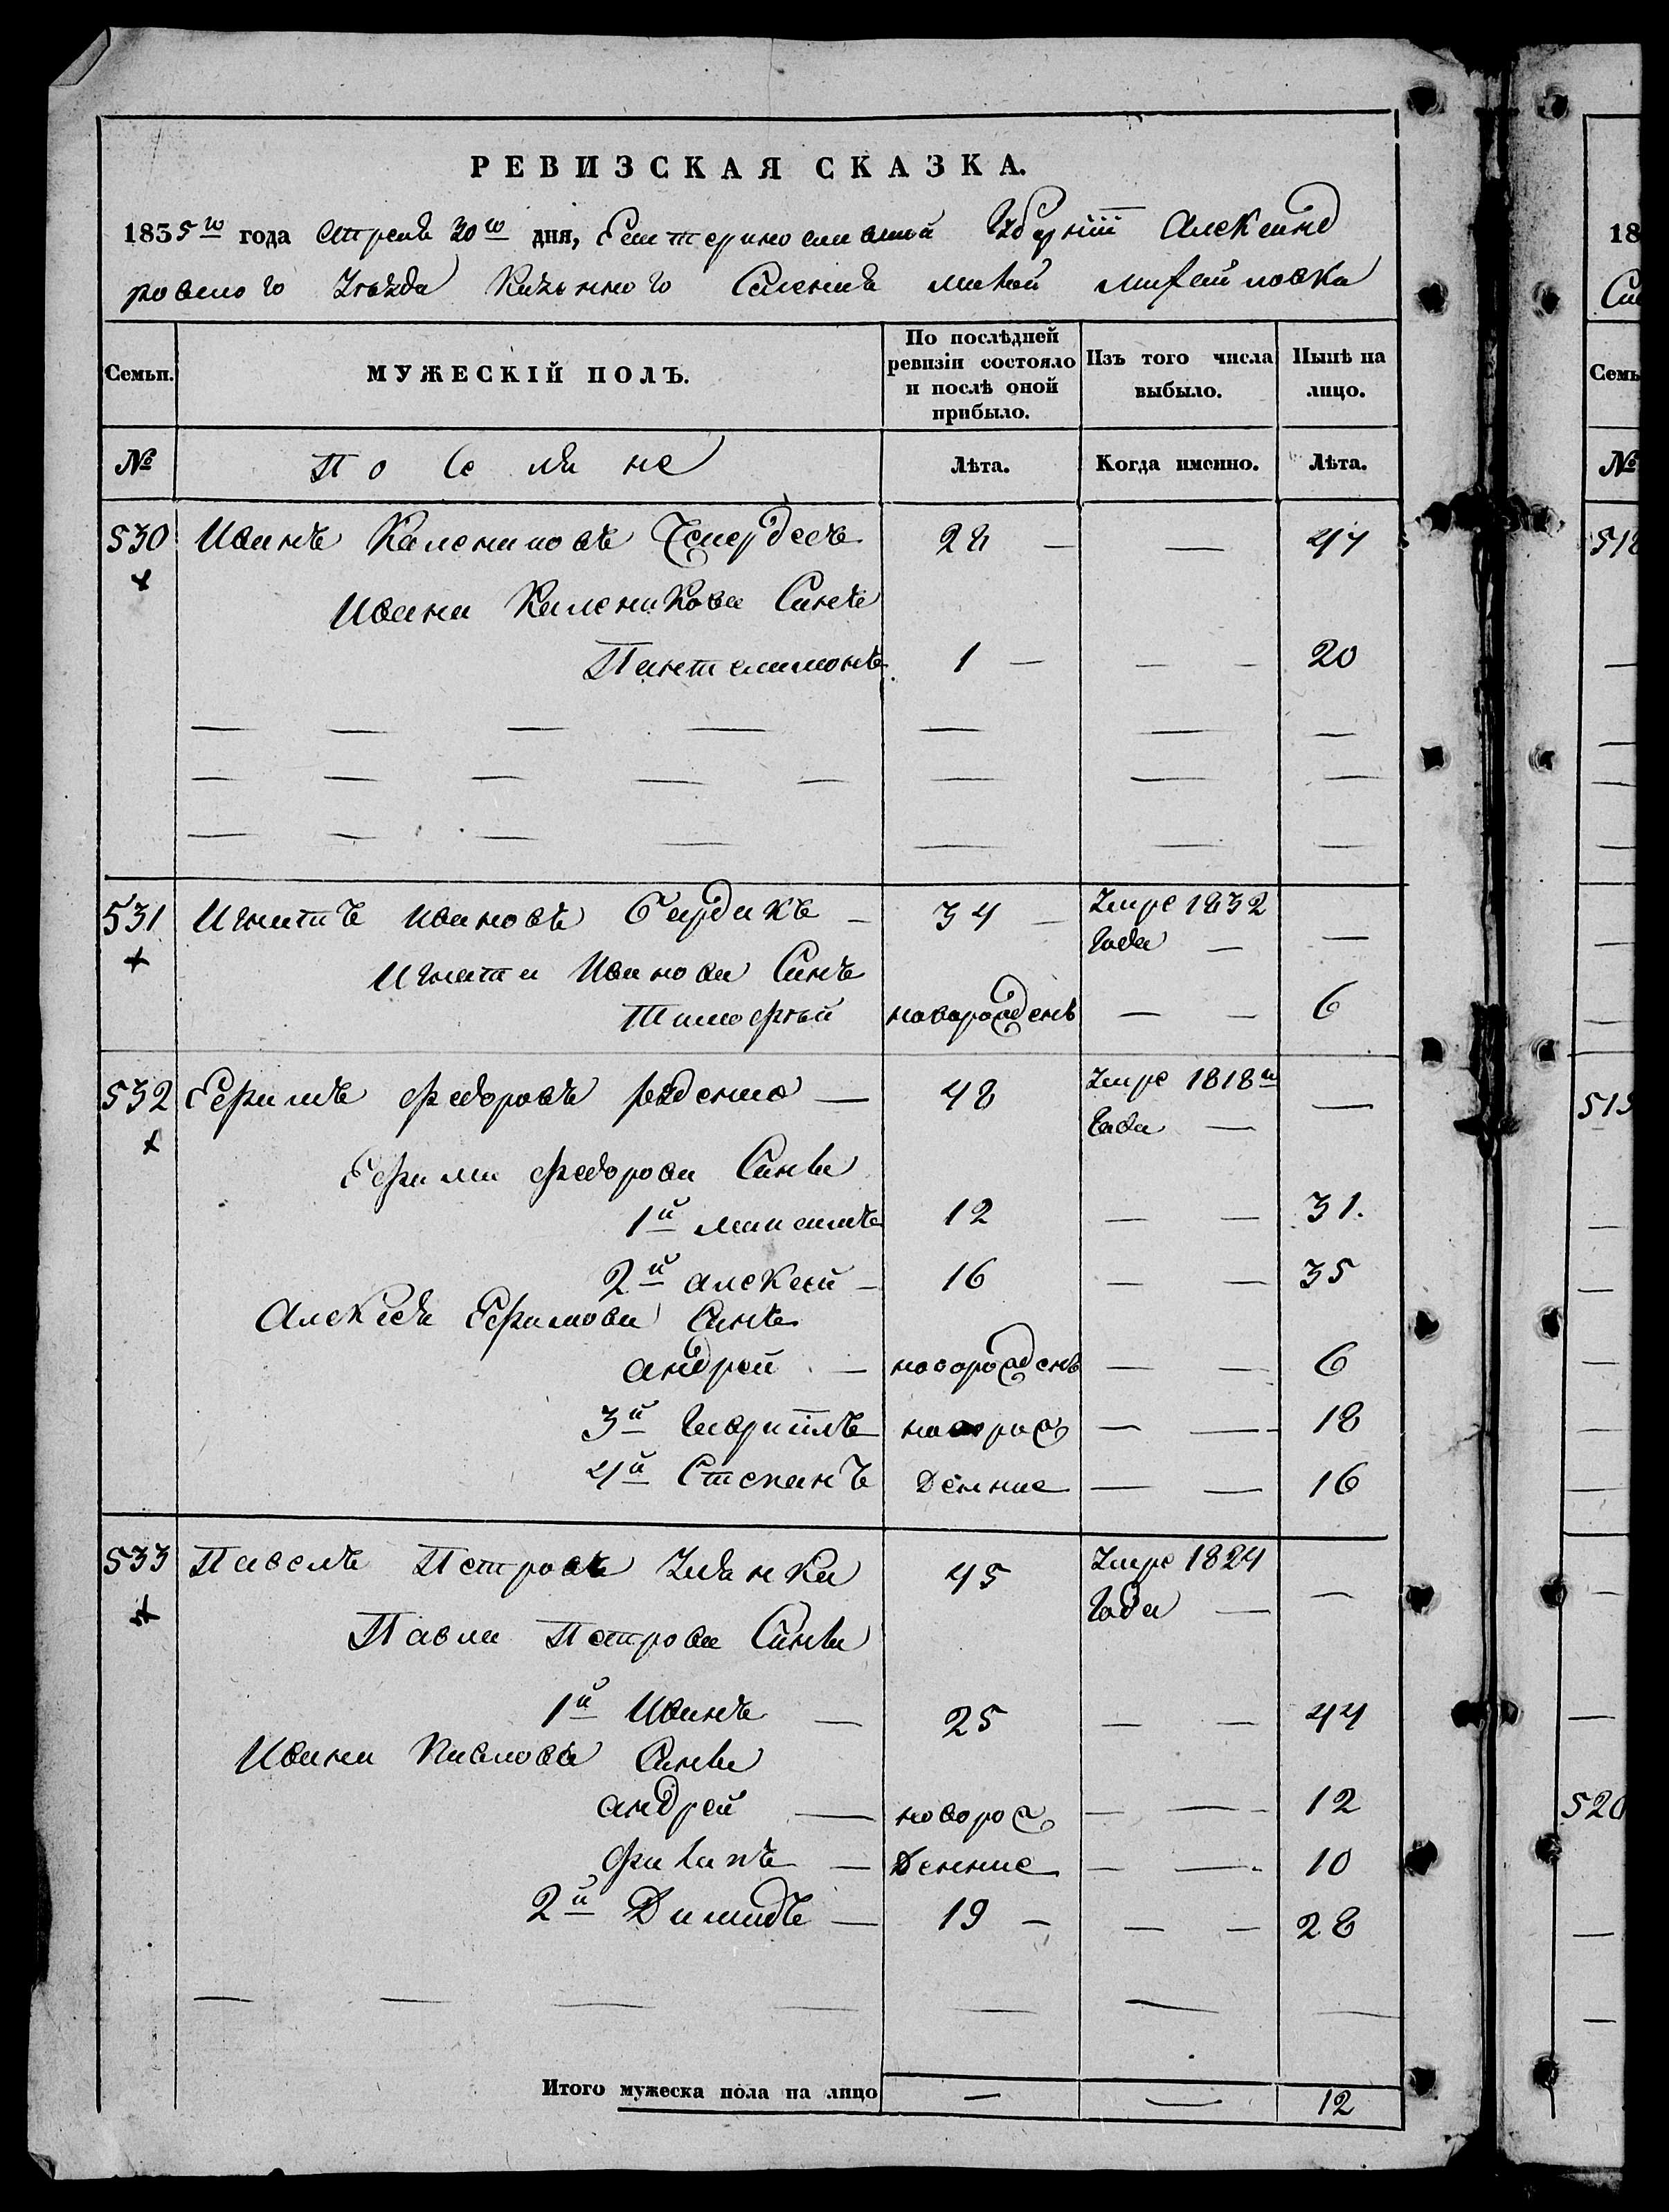 РЕВИЗСКАЯ СКАЗКА.
1835го года Апреля 30го дня, Екатеринославской Губернии Александ
ровского Уезда Казенного Селения малой михайловка
Семьи. МУЖЕСКІЙ ПОЛЪ. По послѣдней ревизіи состояло и послѣ оной прибыло. Изъ того числа выбыло. Нынѣ на лицо.
№ Поселяне Лѣта. Когда именно. Лѣта.
530 Иванъ Калениковъ 28 — — 47
Ивана Каленикова Синъ
Пантелимонъ 1 — — — 20
531 Игнатъ Ивановъ Бардакъ — 34 — Умре 1832 года — —
Игната Иванова Синъ
Тимофѣй новорожденъ — — 6
532 Ефимъ федоровъ — 48 Умре 1818го года — —
Ефима федорова Сины
1й максимъ 12 — — 31.
2й алексей — 16 — — 35
Алексея Ефимова Синъ
андрей — новорожденъ — — 6
3й гавриилъ новорож — — 18
4й Степанъ денние — — 16
533 Павелъ Петровъ 45 Умре 1824 года — —
Павла Петрова Сины
1й Иванъ — 25 — — 44
Ивана Павлова Сины
андрей — новорож — — 12
филипъ — денние — — 10
2й Димидъ — 19 — — — 28
Итого мужеска пола на лицо — — 12
18
Семь
№
518
519
520